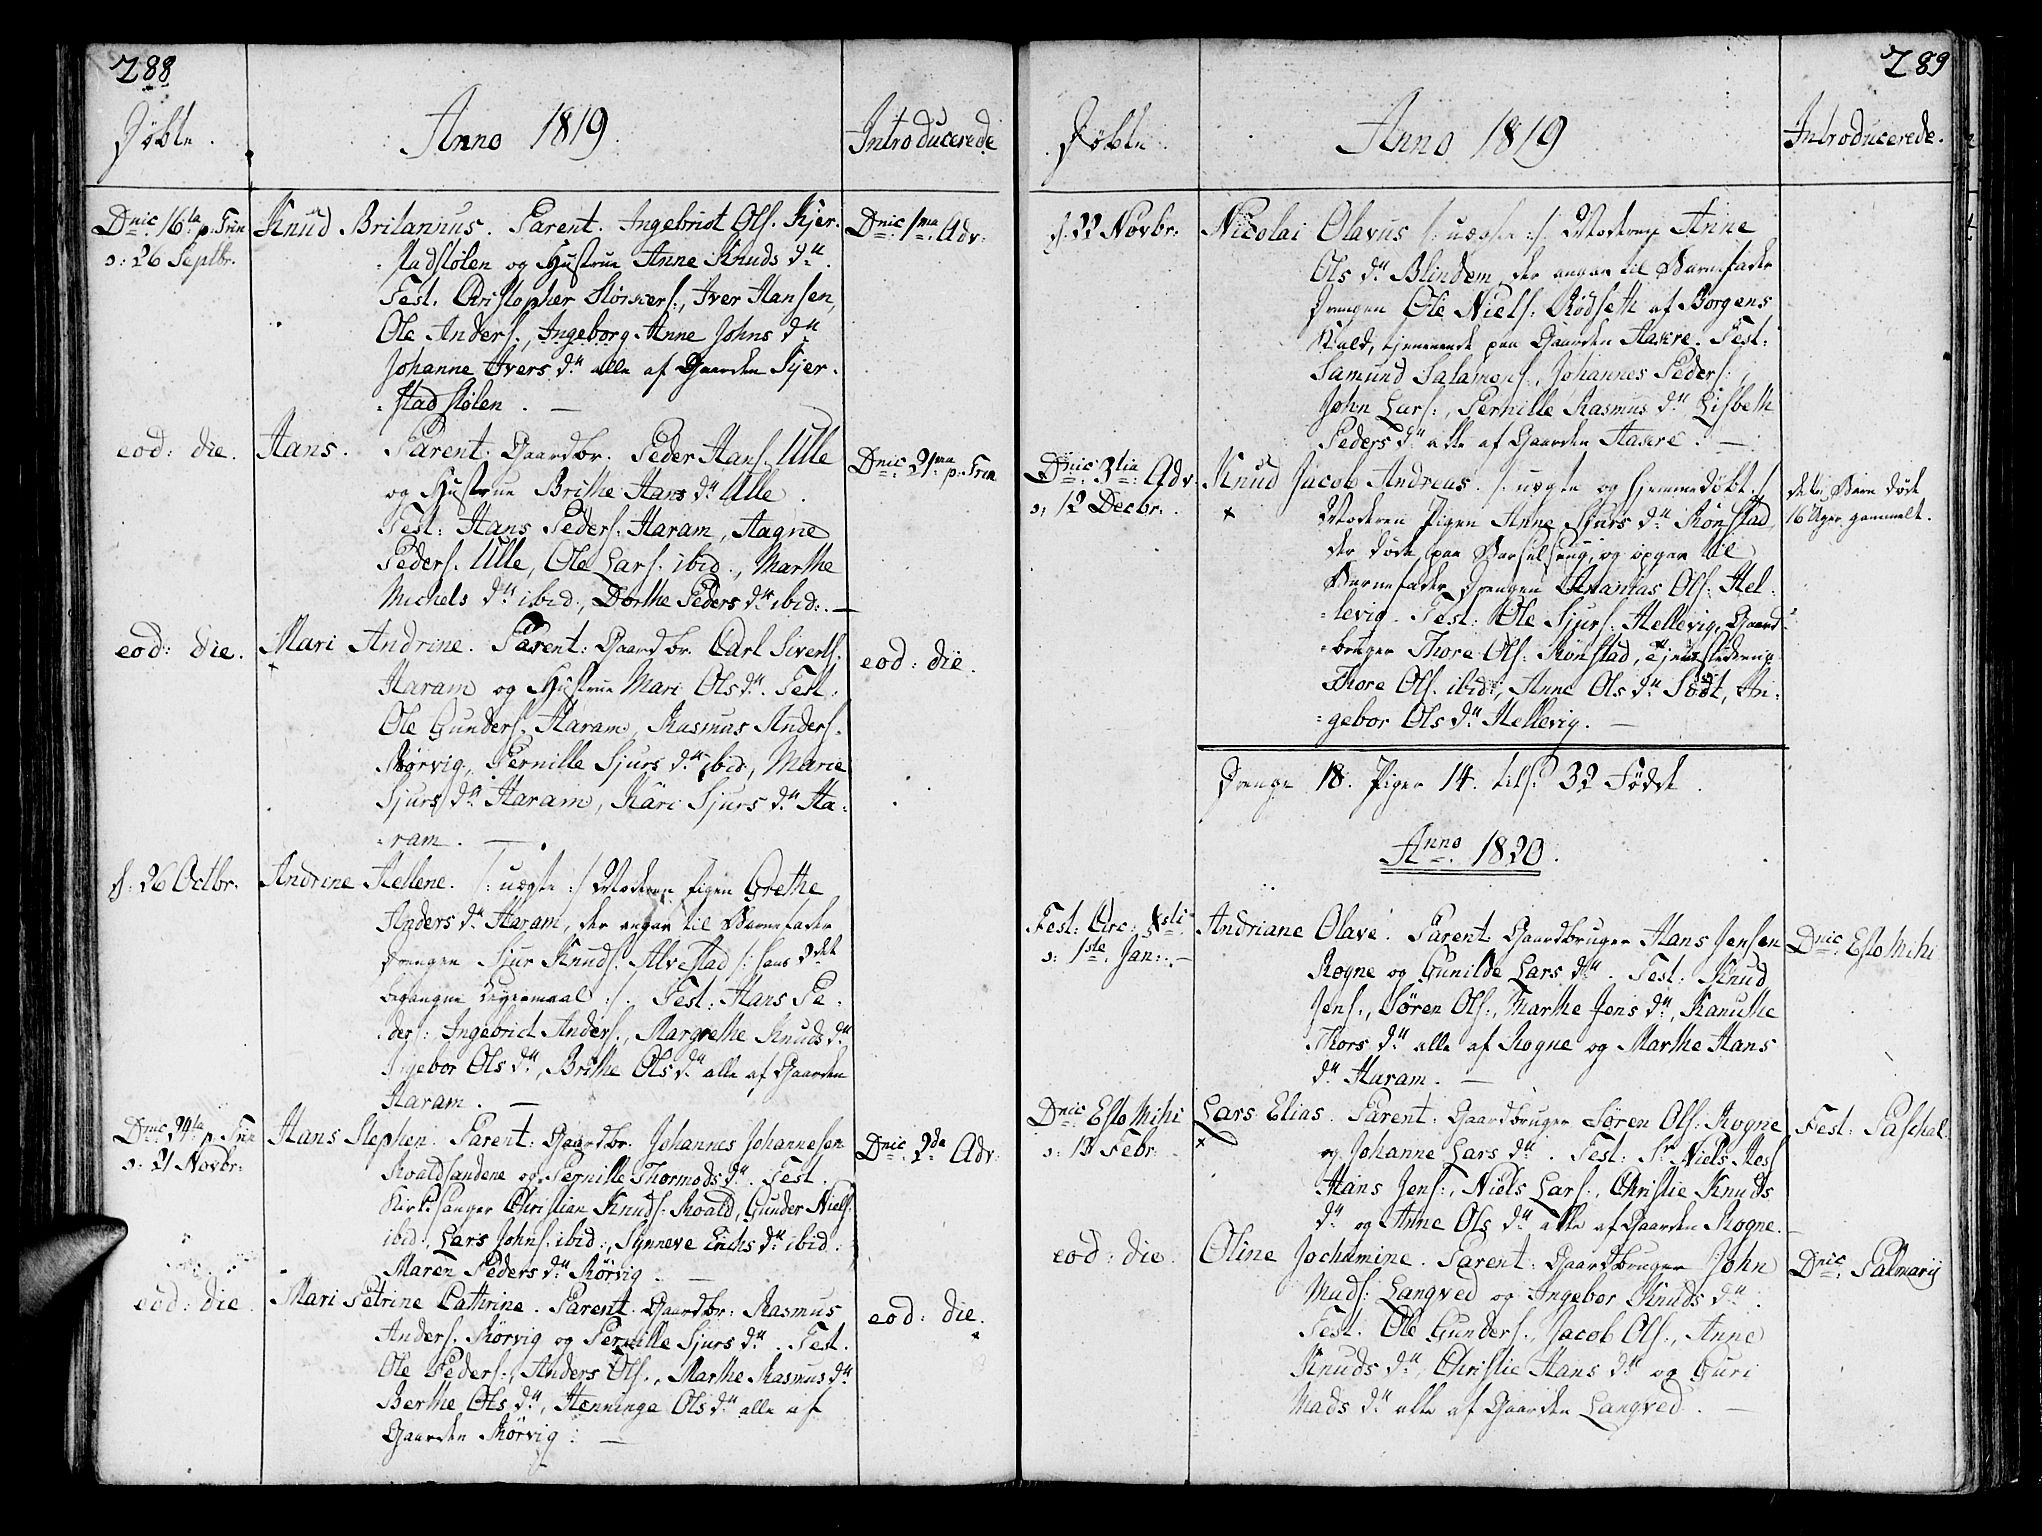 288
Døbte.
Anno 1819.
Introducerede
Dnic 16la p. Trin
ɔ: 26 Septbr.
Knud Britannus. Parent. Ingebrigt Ols. Kjer-
stadstølen og Hustrue Anne Knuds dtr.
Test. Christopher Størkers:, Iver Hansen,
Ole Anders:, Ingeborg Anne Johns dtr
Johanne Ivers dtr alle af Gaarden Kjer-
stadstølen.
Dnic: 1ma Adv:
eod: die.
Hans. Parent: Gaardbr. Peder Hans. Ulle
og Hustrue Brithe Hans dtr Ulle.
Test: Hans Peders. Haram, Aagne
Peders. Ulle, Ole Lars. ibid., Marthe
Michels dtr ibid:, Dorthe Peders dtr ibid:.
Dnic: 21ma p. Trin
eod: die.
Mari Andrine. Parent: Gaardbr. Carl Siverts.
Haram og Hustrue Mari Ols dtr. Test:
Ole Gunders. Haram, Rasmus Anders.
Rørvig, Pernille Sjurs dtr ibid, Marie
Sjurs dtr Haram, Kari Sjurs dtr Ha-
ram.
eod: die.
d. 26 Octbr.
Andrine Hellene. /: uægte :/ Moderen Pigen Grethe
Anders dtr Haram, der angav til Barnefader
Drengen Sjur Knuds. Alvestad /: hans 2det
begangne Leyermaal :/. Test: Hans Pe-
ders: Ingebrict Anders., Margrethe Knuds dtr
Ingebor Ols dtr, Brithe Ols dtr alle af Gaarden
Haram.
Dnic: 24la p. Trin
ɔ: 21 Novbr:
Hans Stephen. Parent: Gaardbr. Johannes Johannesen
Roaldsandene og Pernille Thormods dtr. Test.
Kirkesanger Christian Knuds: Roald, Gunder Niels.
ibid:, Lars Johns. ibid:, Synneve Erichs dtr ibid:
Maren Peders dtr Rørvig.
Dnic: 2da Adv:
eod: die
Mari Petrine Cathrine. Parent. Gaardbr: Rasmus
Anders. Rørvig og Pernille Sjurs dtr. Test.
Ole Peders:, Anders Ols., Marthe Rasmus dtr
Berthe Ols dtr, Henninge Ols dtr alle af
Gaarden Rørvig:
eod: die.
289
Døbte.
Anno 1819
Introducerede.
d. 22 Novbr:
Nicolai Olavus /: uægte :/. Moderen Anne
Ols dtr Blindem, der angav til Barnefader
Drengen Ole Niels: Rødseth af Borgens
Kald, tjenende paa Gaarden Haxere. Test:
Samund Salamons., Johannes Peders:,
John Lars:, Pernille Rasmus dtr Lisbeth
Peders dtr alle af Gaarden Haxere.
Dnic: 3tia: Adv:
ɔ: 12 Decbr:.
Knud Jacob Andreas. /: uægte og hjemmedøbt :/
Moderen Pigen Anne Sjurs dtr Rønstad,
der døde paa Barselseng og opgav til
Barnefader Drengen Ananias Ols: Hel-
levig. Test: Ole Sjurs. Hellevig, Gaard-
bruger Thore Ols: Rønstad,
Thore Ols. ibid:, Anne Ols dtr Sødt, In-
gebor Ols dtr Hellevig.
dette Barn døde
16 Uger gammelt.
Drenge 18. Piger 14. tils. 32 Fødde.
Anno 1820.
Fest: Circ: Xsti
ɔ: 1ste Jan:.
Andriane Olave. Parent Gaardbruger Hans Jensen
Rogne og Gunilde Lars dtr. Test: Knud
Jens., Søren Ols:, Marthe Jens dtr, Kanuthe
Thors dtr alle af Rogne og Marthe Hans
dtr Haram.
Dnic: Esto Mihi
Dnic: Esto Mihi
ɔ: 13 Febr:
Lars Elias. Parent: Gaardbruger Søren Ols: Rogne
og Johanne Lars dtr. Test: Sr Niels Ross
Hans Jens:, Niels Lars:, Christie Knuds
dtr og Anne Ols dtr alle af Gaarden Rogne.
Fest: Paschal.
eod: die.
Oline Jochumine. Parent: Gaardbruger John
Mads: Langved og Ingebor Knuds dtr.
Test. Ole Gunders., Jacob Ols:, Anne
Knuds dtr, Christie Hans dtr og Guri
Mads dtr alle af Gaarden Langved.
Dnic: Palmarij